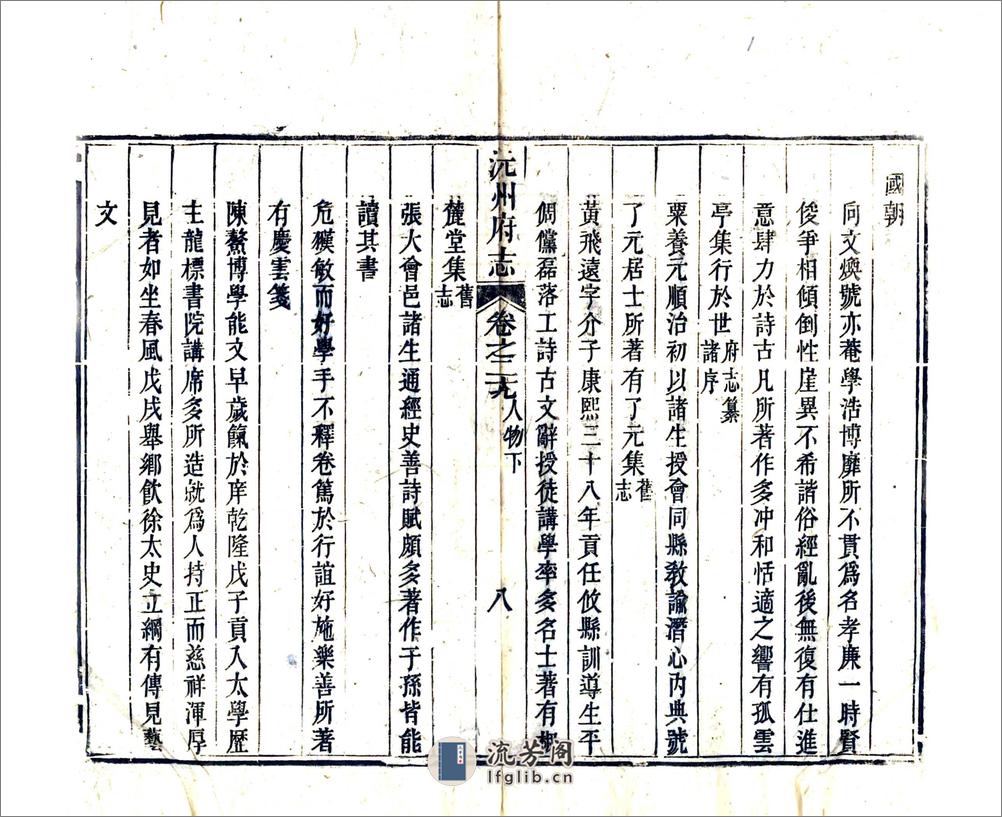 國朝
向文煥號亦菴學浩博靡所不貫爲名孝廉一時賢
俊爭相傾倒性崖異不希諧俗經亂後無復有仕進
意肆力於詩古凡所著作多冲和恬適之響有孤雲
亭集行於世府志纂諸序
粟養元順治初以諸生授會同縣教諭潛心內典號
了元居士所著有了元集舊志
黃飛遠字介子康熙三十八年貢任攸縣訓導生平
倜儻磊落工詩古文辭授徒講學率多名士著有
沅州府志 卷之二十九 人物下 八
麓堂集舊志
張大會邑諸生通經史善詩賦頗多著作子孫皆能
讀其書
危穙敏而好學手不釋卷篤於行誼好施樂善所著
有慶雲箋
陳鰲博學能文早歲餼於庠乾隆戊子貢入太學歷
主龍標書院講席多所造就爲人持正而慈祥渾厚
見者如坐春風戊戌舉鄉飲徐太史立綱有傳見藝
文
流芳阁
lfglib.cn